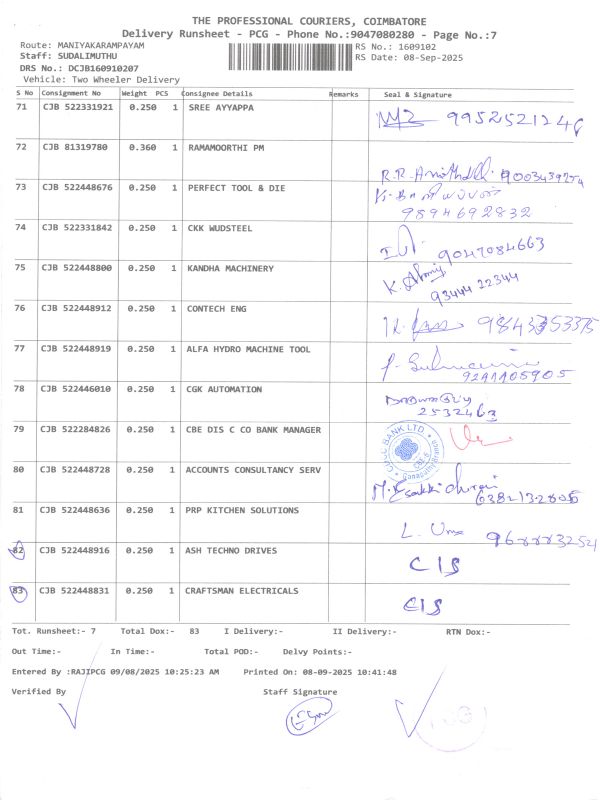 THE PROFESSIONAL COURIERS, COIMBATORE
Delivery Runsheet - PCG - Phone No.:9047080280 - Page No.:7
Route: MANIYAKARAMPAYAM RS No.: 1609102
Staff: SUDALIMUTHU RS Date: 08-Sep-2025
DRS No.: DCJB160910207
Vehicle: Two Wheeler Delivery
S No Consignment No Weight PCS Consignee Details Remarks Seal & Signature
71 CJB 522331921 0.250 1 SREE AYYAPPA
9952521246
72 CJB 81319780 0.360 1 RAMAMOORTHI PM
R.R.
73 CJB 522448676 0.250 1 PERFECT TOOL & DIE
9894692832
74 CJB 522331842 0.250 1 CKK WUDSTEEL
9047084663
75 CJB 522448800 0.250 1 KANDHA MACHINERY
93444 22344
76 CJB 522448912 0.250 1 CONTECH ENG
77 CJB 522448919 0.250 1 ALFA HYDRO MACHINE TOOL
78 CJB 522446010 0.250 1 CGK AUTOMATION
2532463
79 CJB 522284826 0.250 1 CBE DIS C CO BANK MANAGER
BANK LTD.
Ganapathy Branch
80 CJB 522448728 0.250 1 ACCOUNTS CONSULTANCY SERV
M. Esakkidurai
6382132805
81 CJB 522448636 0.250 1 PRP KITCHEN SOLUTIONS
L. Uma
82 CJB 522448916 0.250 1 ASH TECHNO DRIVES
CIS
83 CJB 522448831 0.250 1 CRAFTSMAN ELECTRICALS
CIS
Tot. Runsheet:- 7 Total Dox:- 83 I Delivery:- II Delivery:- RTN Dox:-
Out Time:- In Time:- Total POD:- Delvy Points:-
Entered By :RAJIPCG 09/08/2025 10:25:23 AM Printed On: 08-09-2025 10:41:48
Verified By Staff Signature